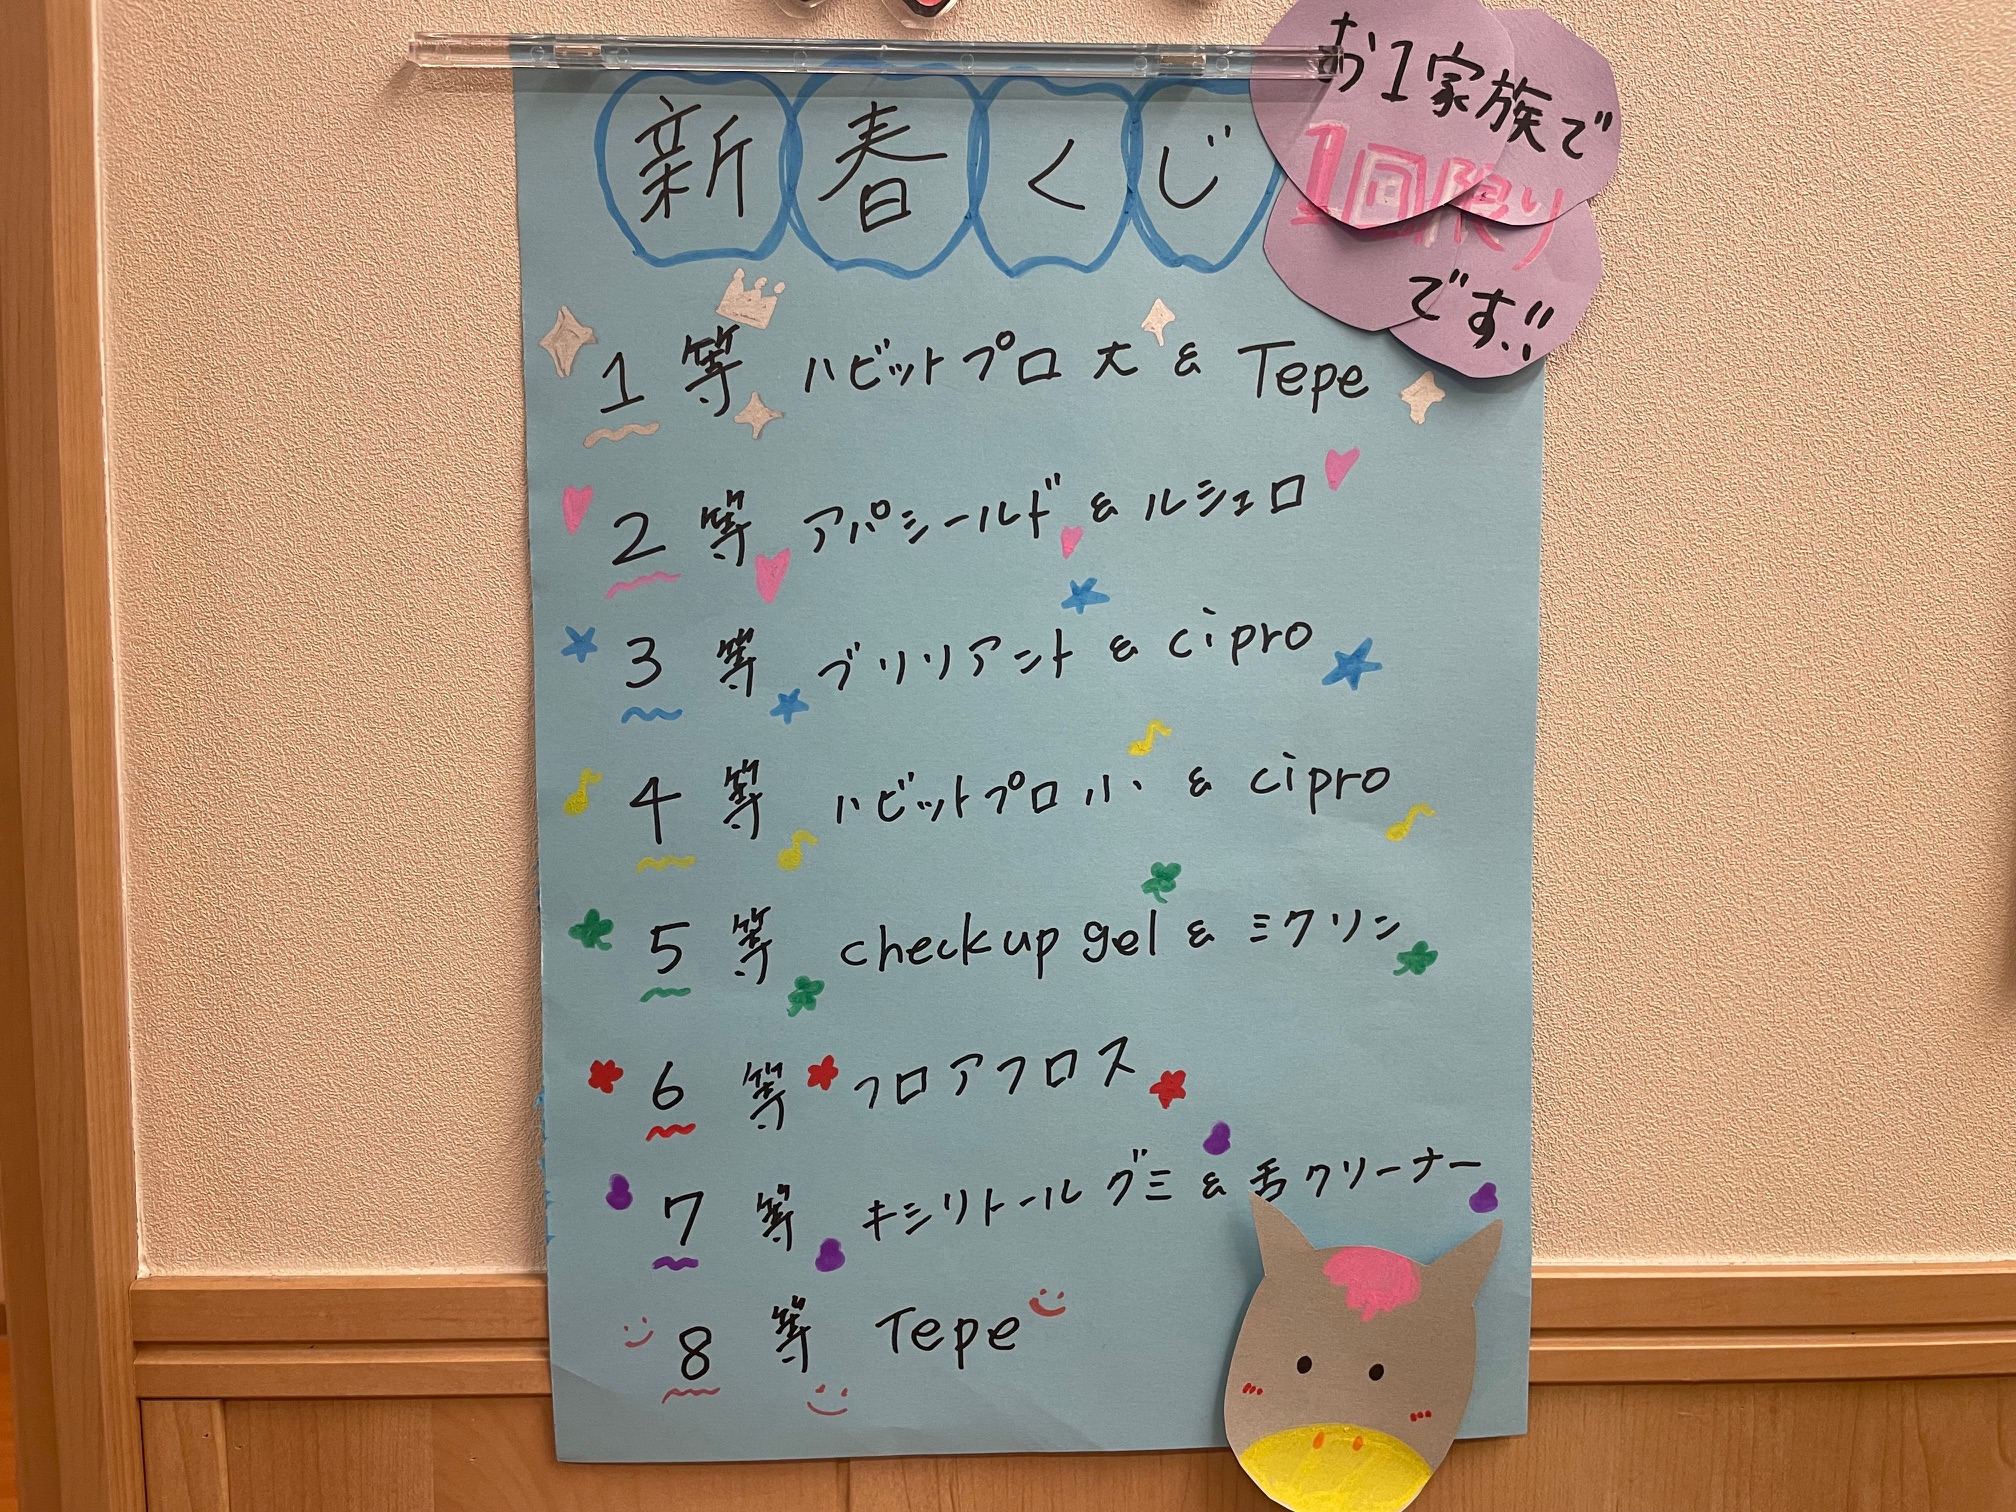 新春くじ
お1家族で
1回限り
です!!
1等 ハビットプロ大 & Tepe
2等 アパシールド & ルシェロ
3等 ブリリアント & cipro
4等 ハビットプロ小 & cipro
5等 checkup gel & ミクリン
6等 フロアフロス
7等 キシリトールグミ & 舌クリーナー
8等 Tepe